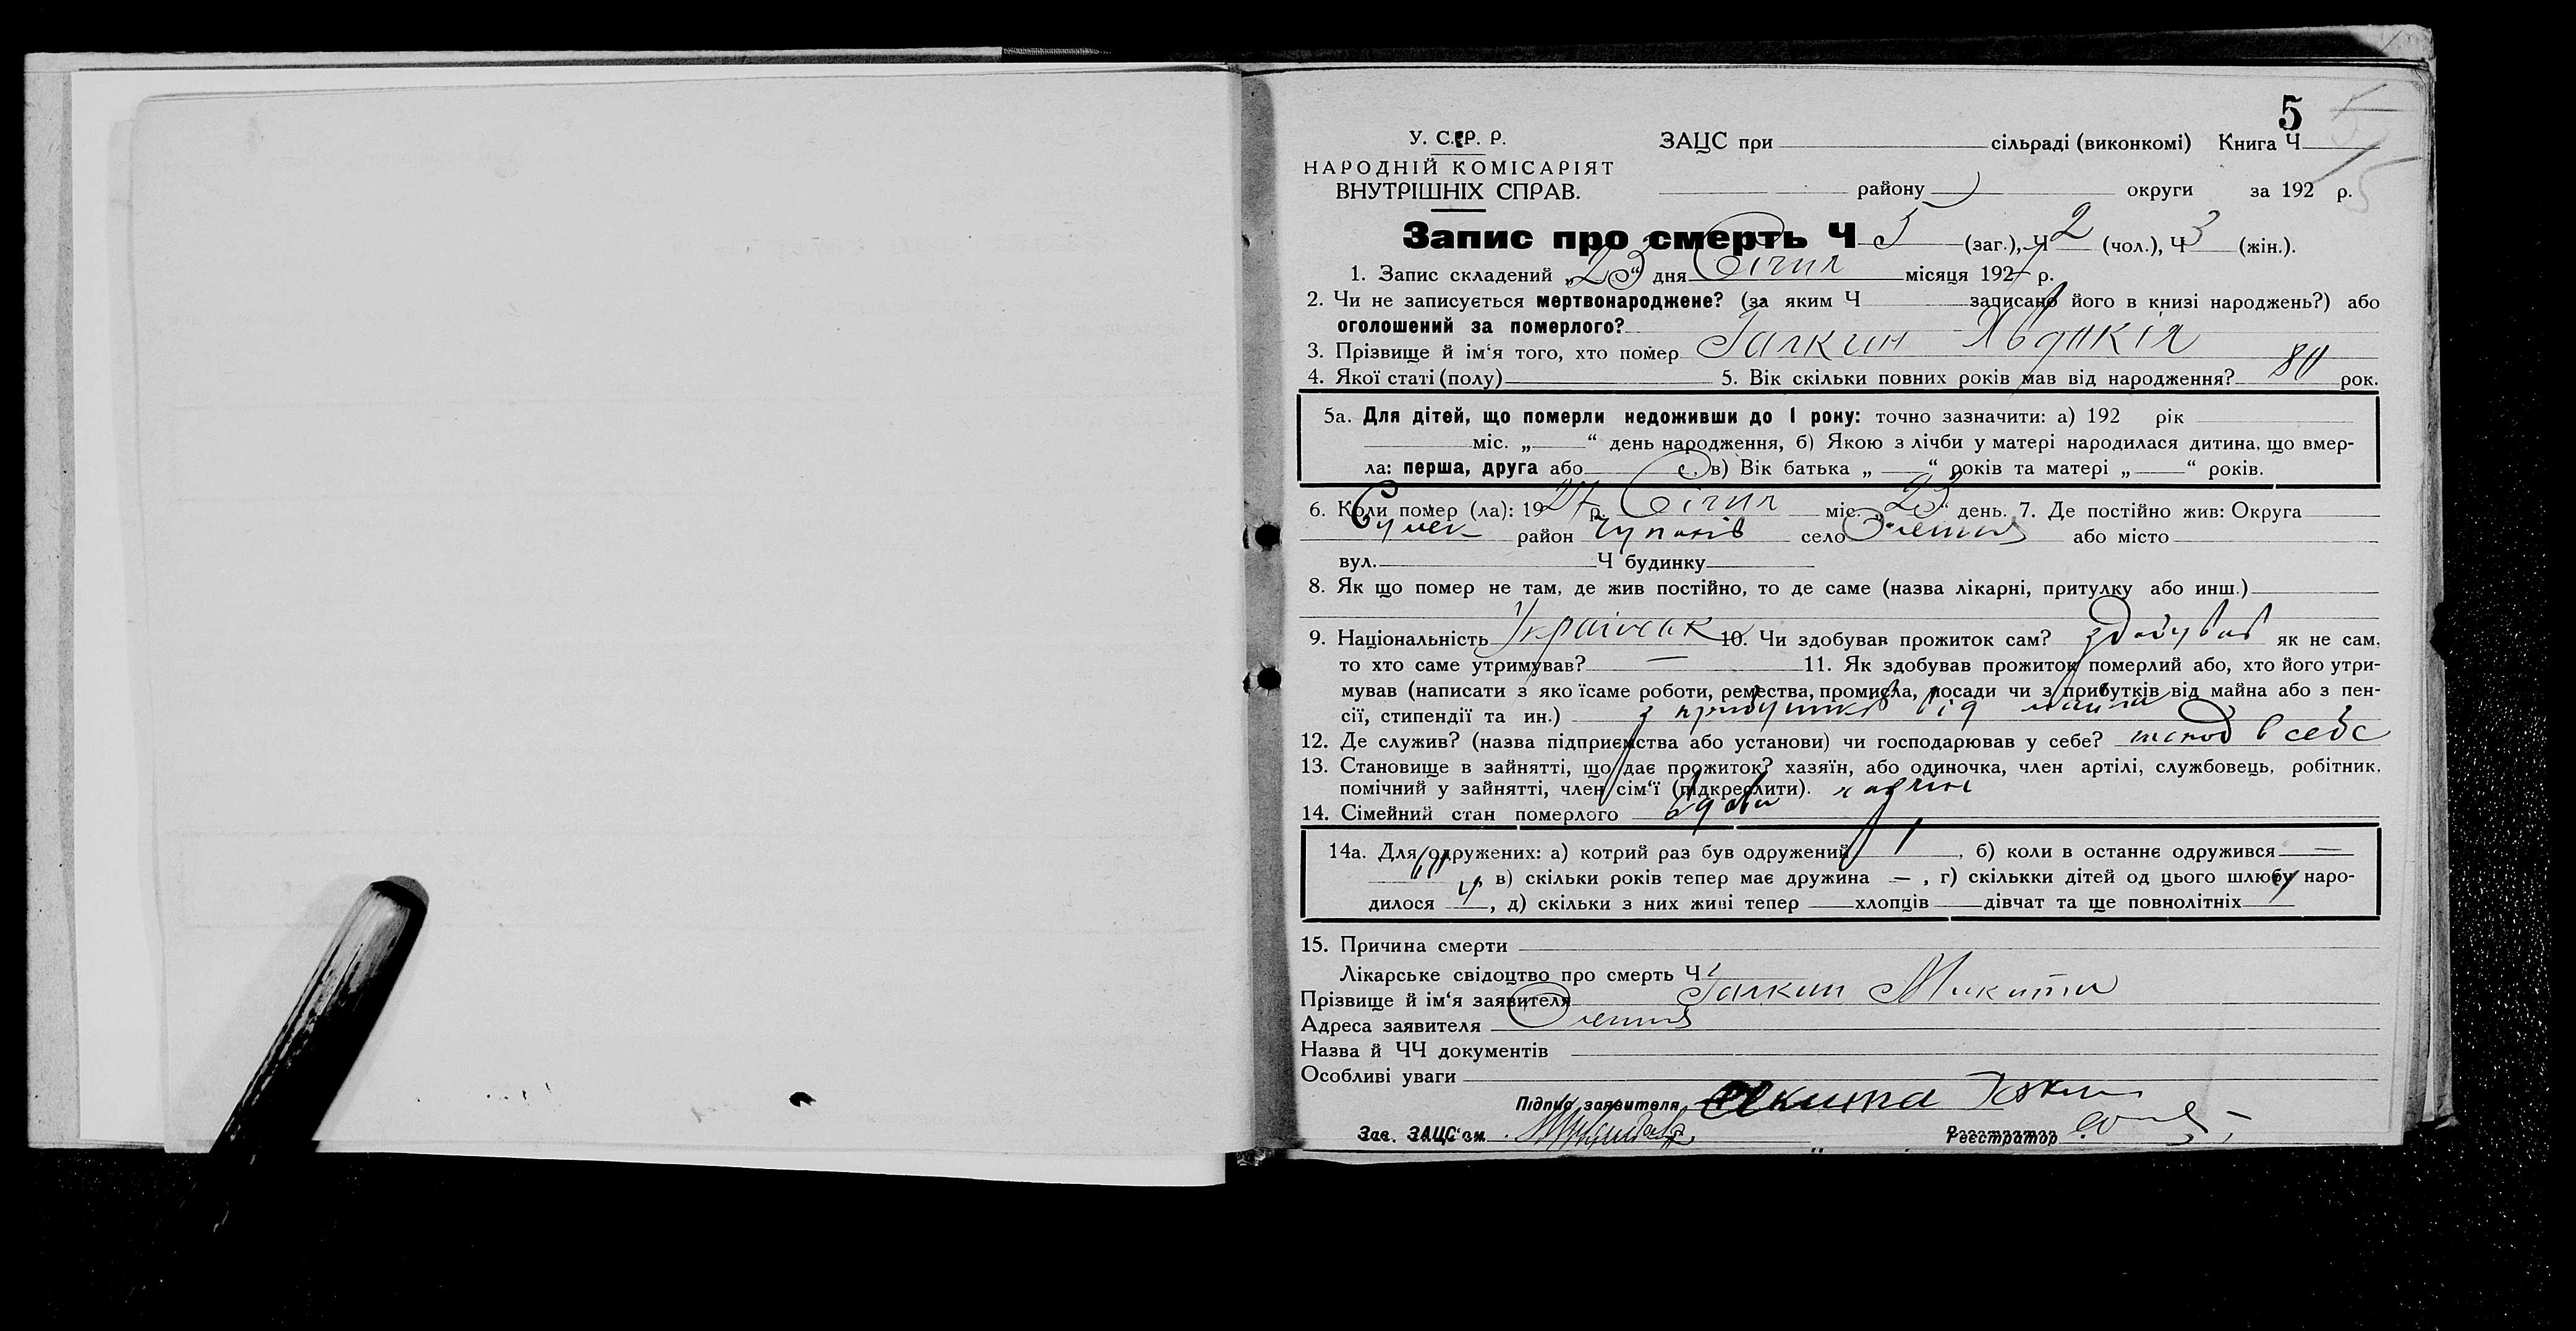 5
У. С. Р. Р. ЗАЦС при сільраді (виконкомі) Книга Ч
НАРОДНІЙ КОМІСАРІЯТ
ВНУТРІШНІХ СПРАВ. району округи за 192 р.
Запис про смерть Ч 5 (заг.), Ч 2 (чол.), Ч 3 (жін.).
1. Запис складений „23“ дня Січня місяця 1927 р.
2. Чи не записується мертвонароджене? (за яким Ч записано його в книзі народжень?) або
оголошений за померлого?
3. Прізвище й ім‘я того, хто помер Галкин Явдокія
4. Якої статі (полу) 5. Вік скільки повних років мав від народження? 80 рок.
5а. Для дітей, що померли недоживши до 1 року: точно зазначити: а) 192 рік
міс. „ “ день народження, б) Якою з лічби у матері народилася дитина, що вмер-
ла: перша, друга або в) Вік батька „ “ років та матері „ “ років.
6. Коли помер (ла): 1927 р. Січня міс. „23“ день. 7. Де постійно жив: Округа
Сумск район Чупахів село або місто
вул. Ч будинку
8. Як що помер не там, де жив постійно, то де саме (назва лікарні, притулку або инш.)
9. Національність 10. Чи здобував прожиток сам? здобував як не сам,
то хто саме утримував? — 11. Як здобував прожиток померлий або, хто його утри-
мував (написати з яко їсаме роботи, ремества, промисла, посади чи з прибутків від майна або з пен-
сії, стипендії та ин.) з прибутків від майна
12. Де служив? (назва підприємства або установи) чи господарював у себе? в себе
13. Становище в зайнятті, що дає прожиток? хазяїн, або одиночка, член артілі, службовець, робітник,
помічний у зайнятті, член сім‘ї (підкреслити).
14. Сімейний стан померлого вдова
14а. Для одружених: а) котрий раз був одружений 1, б) коли в останнє одружився —
в) скільки років тепер має дружина —, г) скількки дітей од цього шлюбу наро-
дилося, д) скільки з них живі тепер хлопців дівчат та ще повнолітніх
15. Причина смерти
Лікарське свідоцтво про смерть Ч
Прізвище й ім‘я заявителя Галкин Микита
Адреса заявителя
Назва й ЧЧ документів
Особливі уваги
Підпис заявителя
Зав. ЗАЦС‘ом Реєстратор